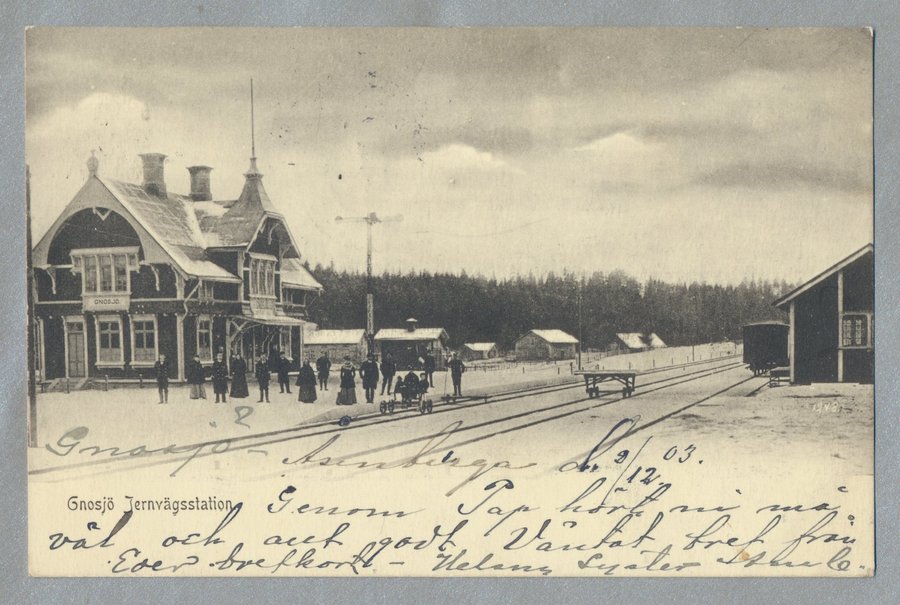 GNOSJÖ
Gnosjö
Asenberga d. 9/12. 03.
Gnosjö Jernvägsstation
Genom Pap hört ni må
väl och aut godt Väntat bref från
Eder brefkort - Helsn Syster